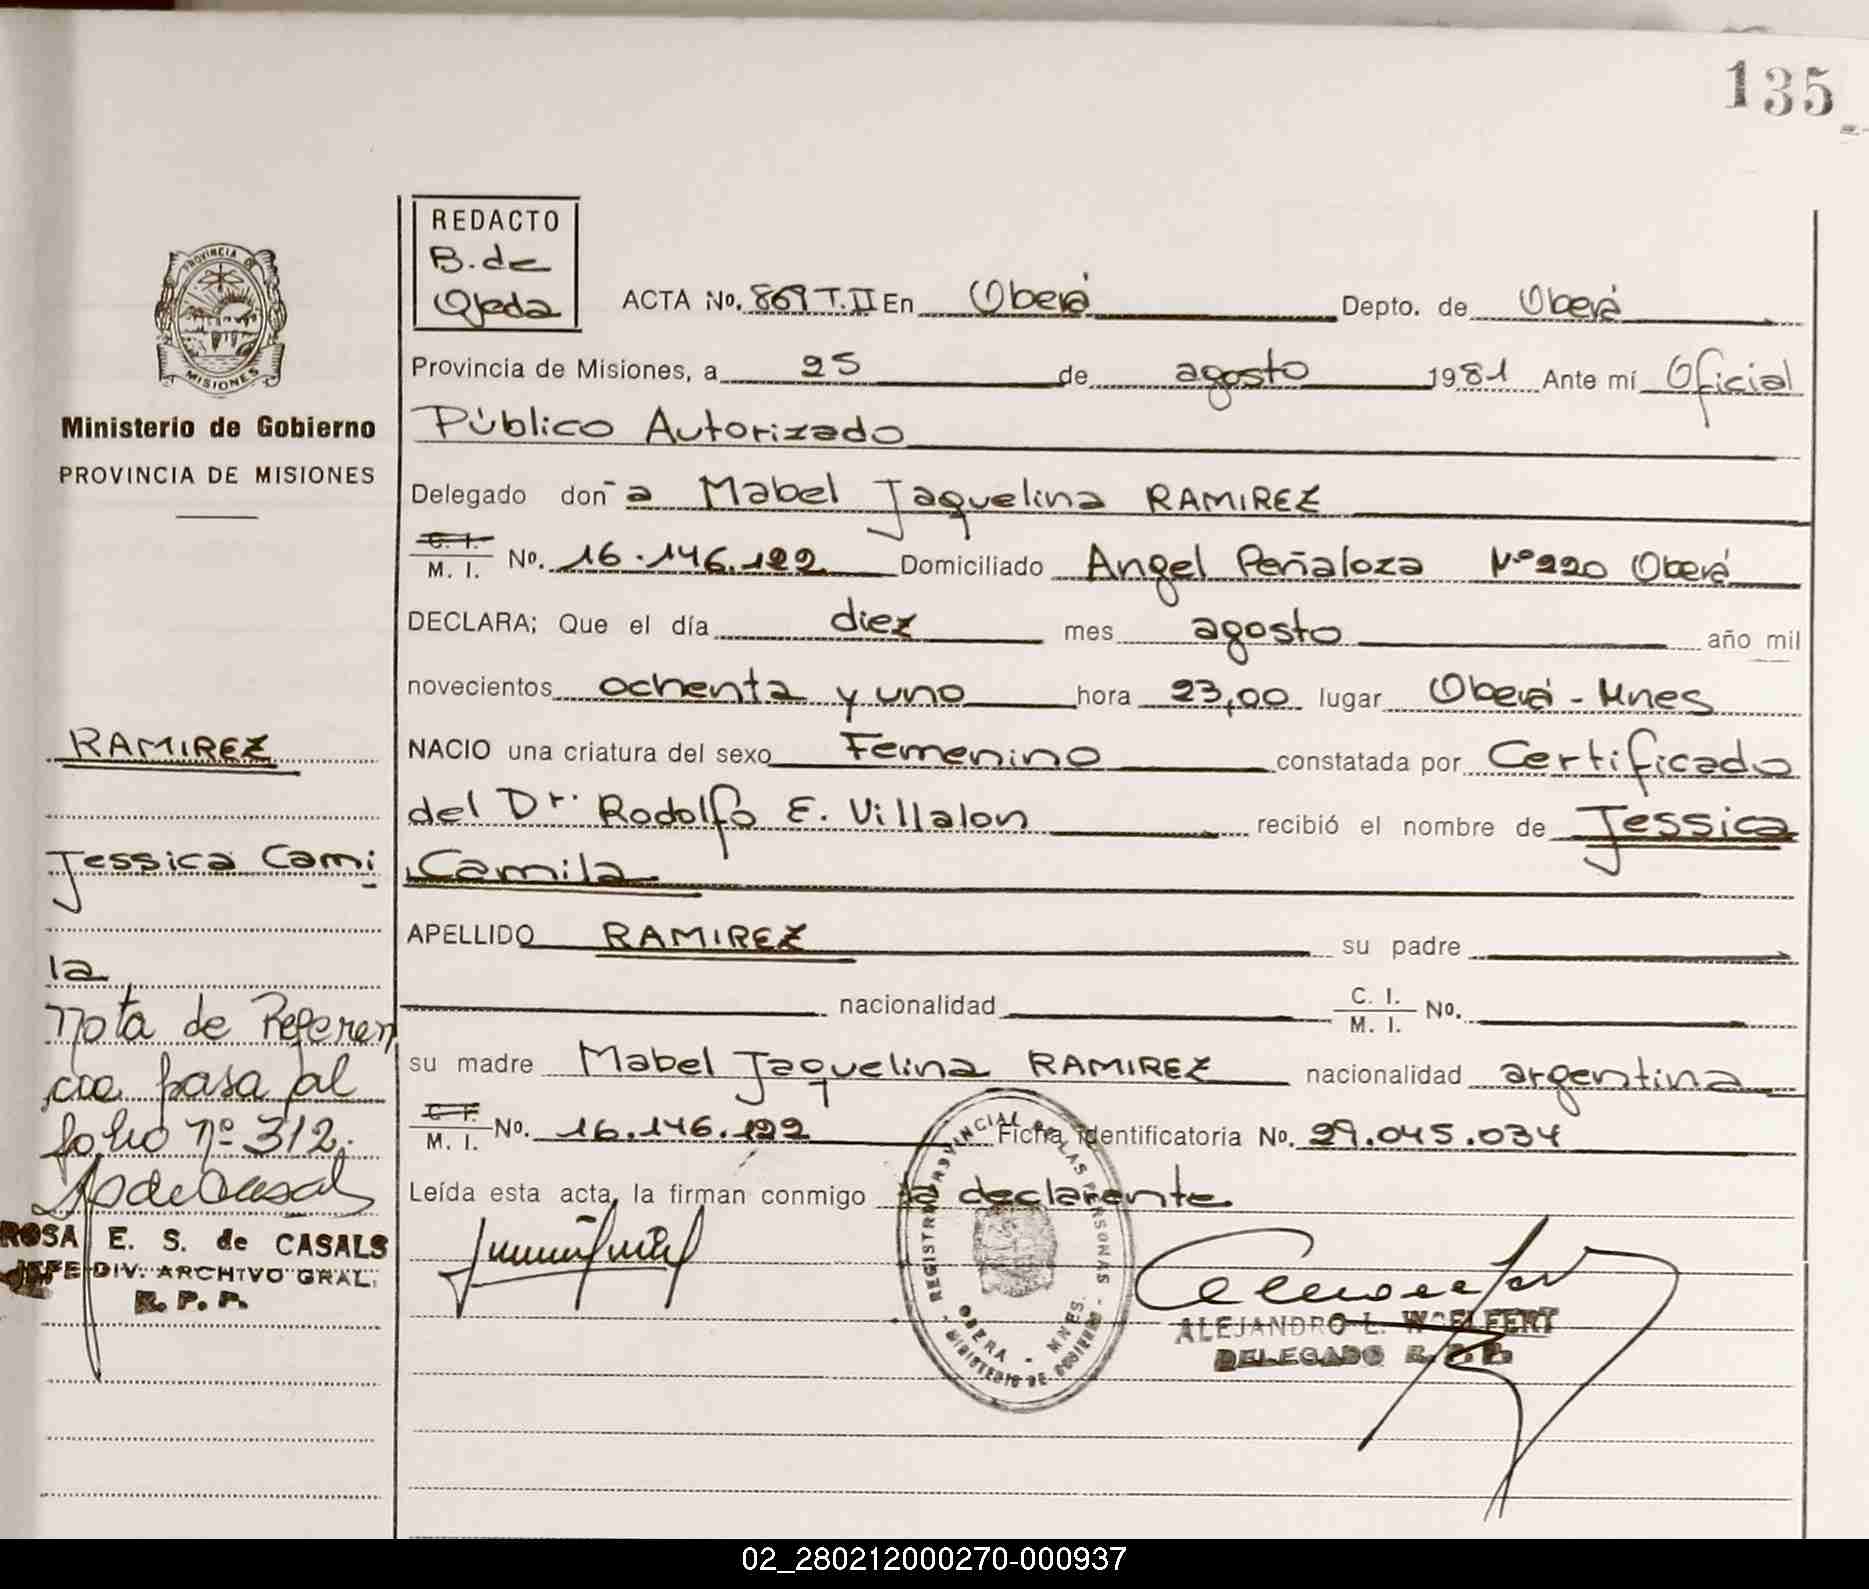 135
REDACTO
B. de
Ojeda
PROVINCIA DE
MISIONES
Ministerio de Gobierno
PROVINCIA DE MISIONES
ACTA No. 869 T.II En Oberá Depto. de Oberá
Provincia de Misiones, a 25 de agosto 1981 Ante mí Oficial
Público Autorizado
Delegado doñ a Mabel Jaquelina RAMIREZ
C. I.
M. I. No. 16.146.122 Domiciliado Angel Peñaloza Nº 220 Oberá
DECLARA; Que el día diez mes agosto año mil
novecientos ochenta y uno hora 23,00 lugar Oberá - Mnes
NACIO una criatura del sexo Femenino constatada por Certificado
del Dr. Rodolfo E. Villalon recibió el nombre de Jessica
Camila
APELLIDO RAMIREZ su padre
nacionalidad C. I.
M. I. No.
su madre Mabel Jaquelina RAMIREZ nacionalidad argentina
C. I.
M. I. No. 16.146.122 Ficha identificatoria No. 29.045.034
Leída esta acta, la firman conmigo la declarante
RAMIREZ
Jessica Cami
la
Nota de Referen
cia pasa al
folio nº 312.
ROSA E. S. de CASALS
JEFE DIV. ARCHIVO GRAL.
R. P. P.
REGISTRO PROVINCIAL DE LAS PERSONAS
OBERA - MNES.
MINISTERIO DE GOBIERNO
ALEJANDRO L. WOELFERT
DELEGADO R. P. P.
02_280212000270-000937